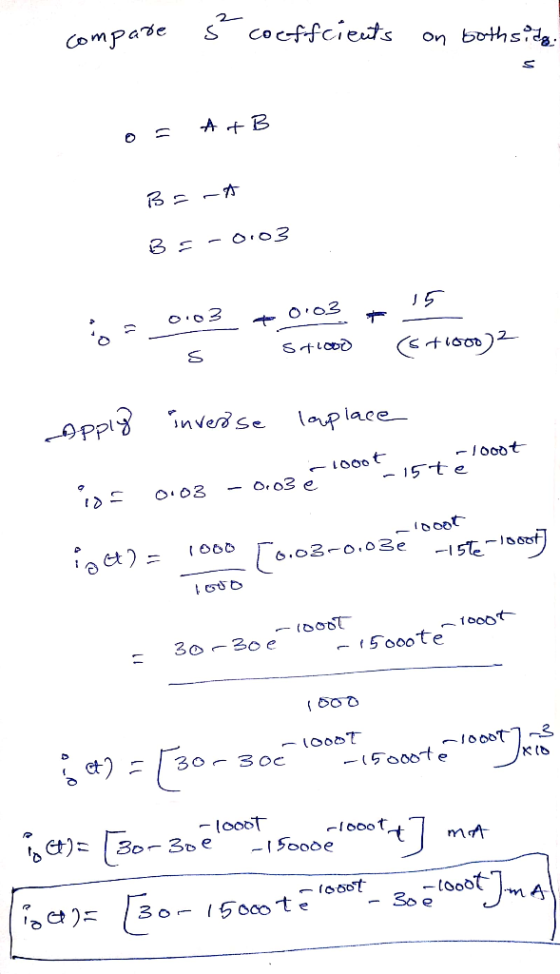 compare s² coeffcients on bothside.
s
0 = A + B
B = -A
B = -0.03
i₀ = 0.03/s + 0.03/(s+1000) + 15/(s+1000)²
Apply inverse laplace
i₀ = 0.03 - 0.03 e^-1000t - 15 t e^-1000t
i₀(t) = 1000/1000 [0.03 - 0.03e^-1000t - 15te^-1000t]
= (30 - 30e^-1000t - 15000te^-1000t)/1000
i₀(t) = [30 - 30e^-1000t - 15000te^-1000t] x10^-3
i₀(t) = [30 - 30e^-1000t - 15000e^-1000t t] mA
i₀(t) = [30 - 15000te^-1000t - 30e^-1000t] mA